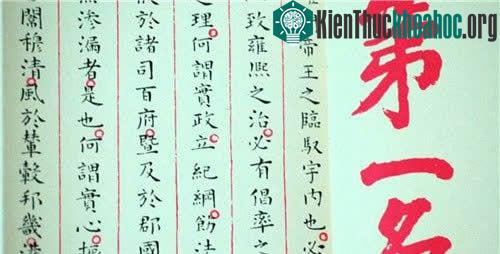 KienThucKhoaHoc.org
第一名
帝王之臨馭宇内也必
致雍熙之治必有倡率之
之理何謂實政立紀綱飭法
於諸司百府暨及於郡國
滲漏者是也何謂實心振
闈穆清風於輦轂邦畿